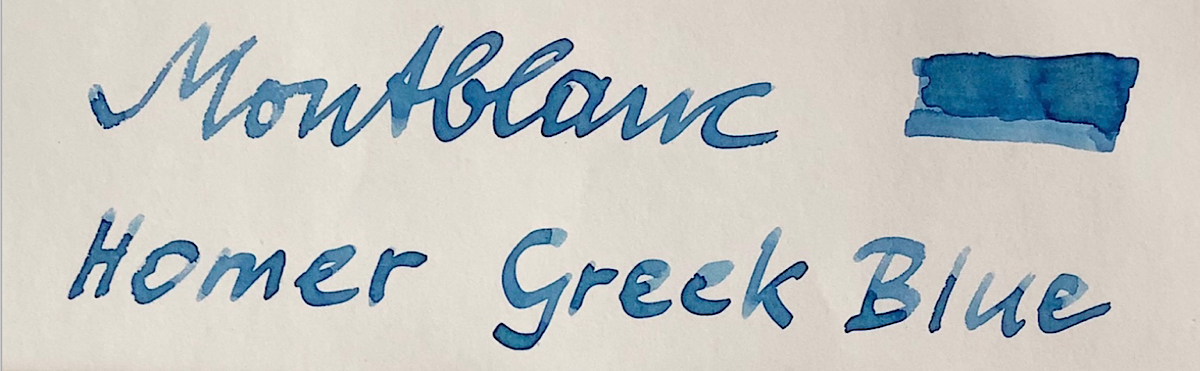 Montblanc
Homer Greek Blue